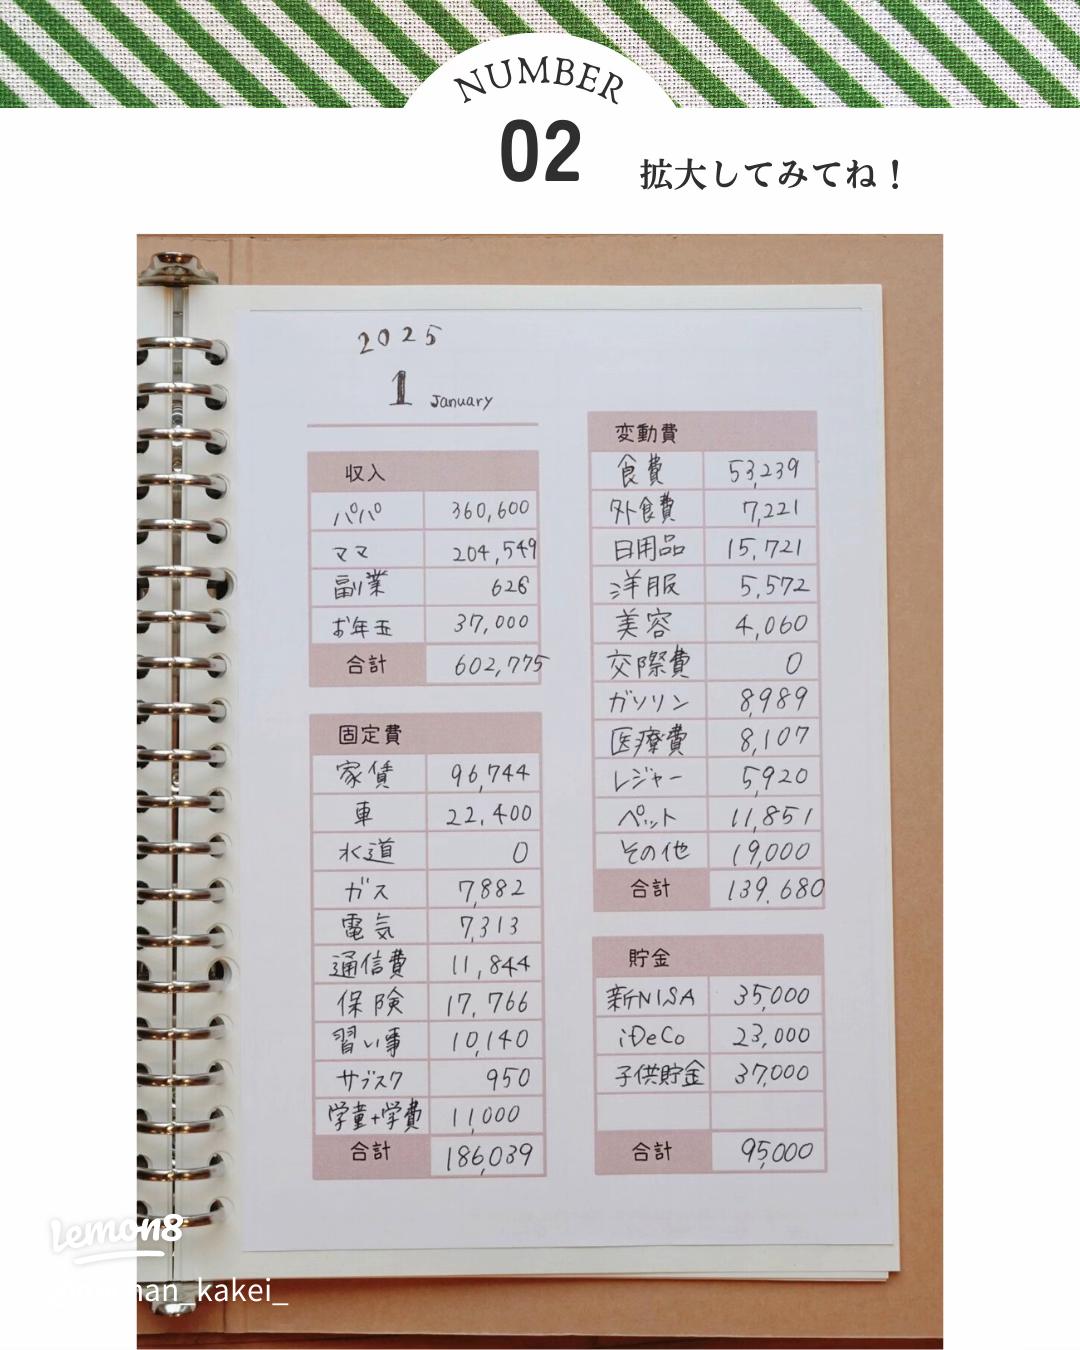 NUMBER
02
拡大してみてね！
2025
1 January
収入
パパ 360,600
ママ 204,549
副業 626
お年玉 37,000
合計 602,775
固定費
家賃 96,744
車 22,400
水道 0
ガス 7,882
電気 7,313
通信費 11,844
保険 17,766
習い事 10,140
サブスク 950
学童+学費 11,000
合計 186,039
変動費
食費 53,239
外食費 7,221
日用品 15,721
洋服 5,572
美容 4,060
交際費 0
ガソリン 8,989
医療費 8,107
レジャー 5,920
ペット 11,851
その他 19,000
合計 139.680
貯金
新NISA 35,000
iDeCo 23,000
子供貯金 37,000
合計 95,000
lemon8
_kakei_